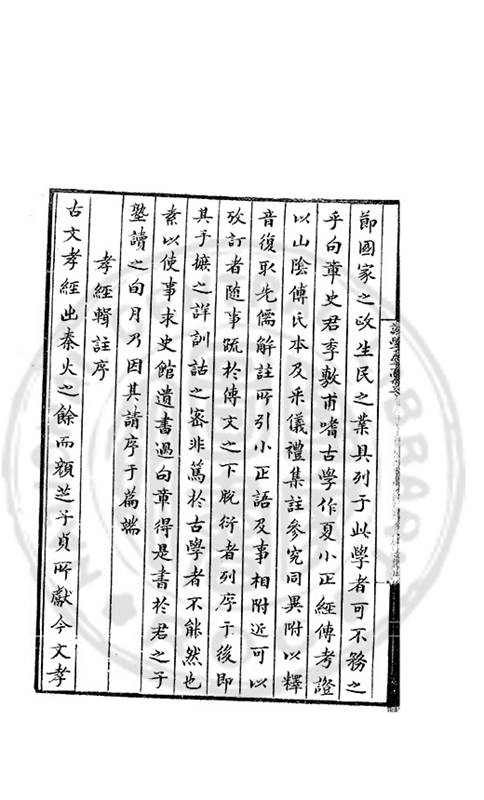 節國家之政生民之業具列于此學者可不務之
乎句章史君季敷甫嗜古學作夏小正經傳考證
以山陰傅氏本及采儀禮集註參究同異附以釋
音復取先儒解註所引小正語及事相附近可以
攷訂者隨事䟽於傳文之下脫衍者列序于後即
其于據之詳訓詁之密非篤於古學者不能然也
素以使事求史館遺書過句章得是書於君之子
塾讀之旬月乃因其請序于篇端
孝經輯註序
古文孝經出秦火之餘而顏芝子貞所獻今文孝